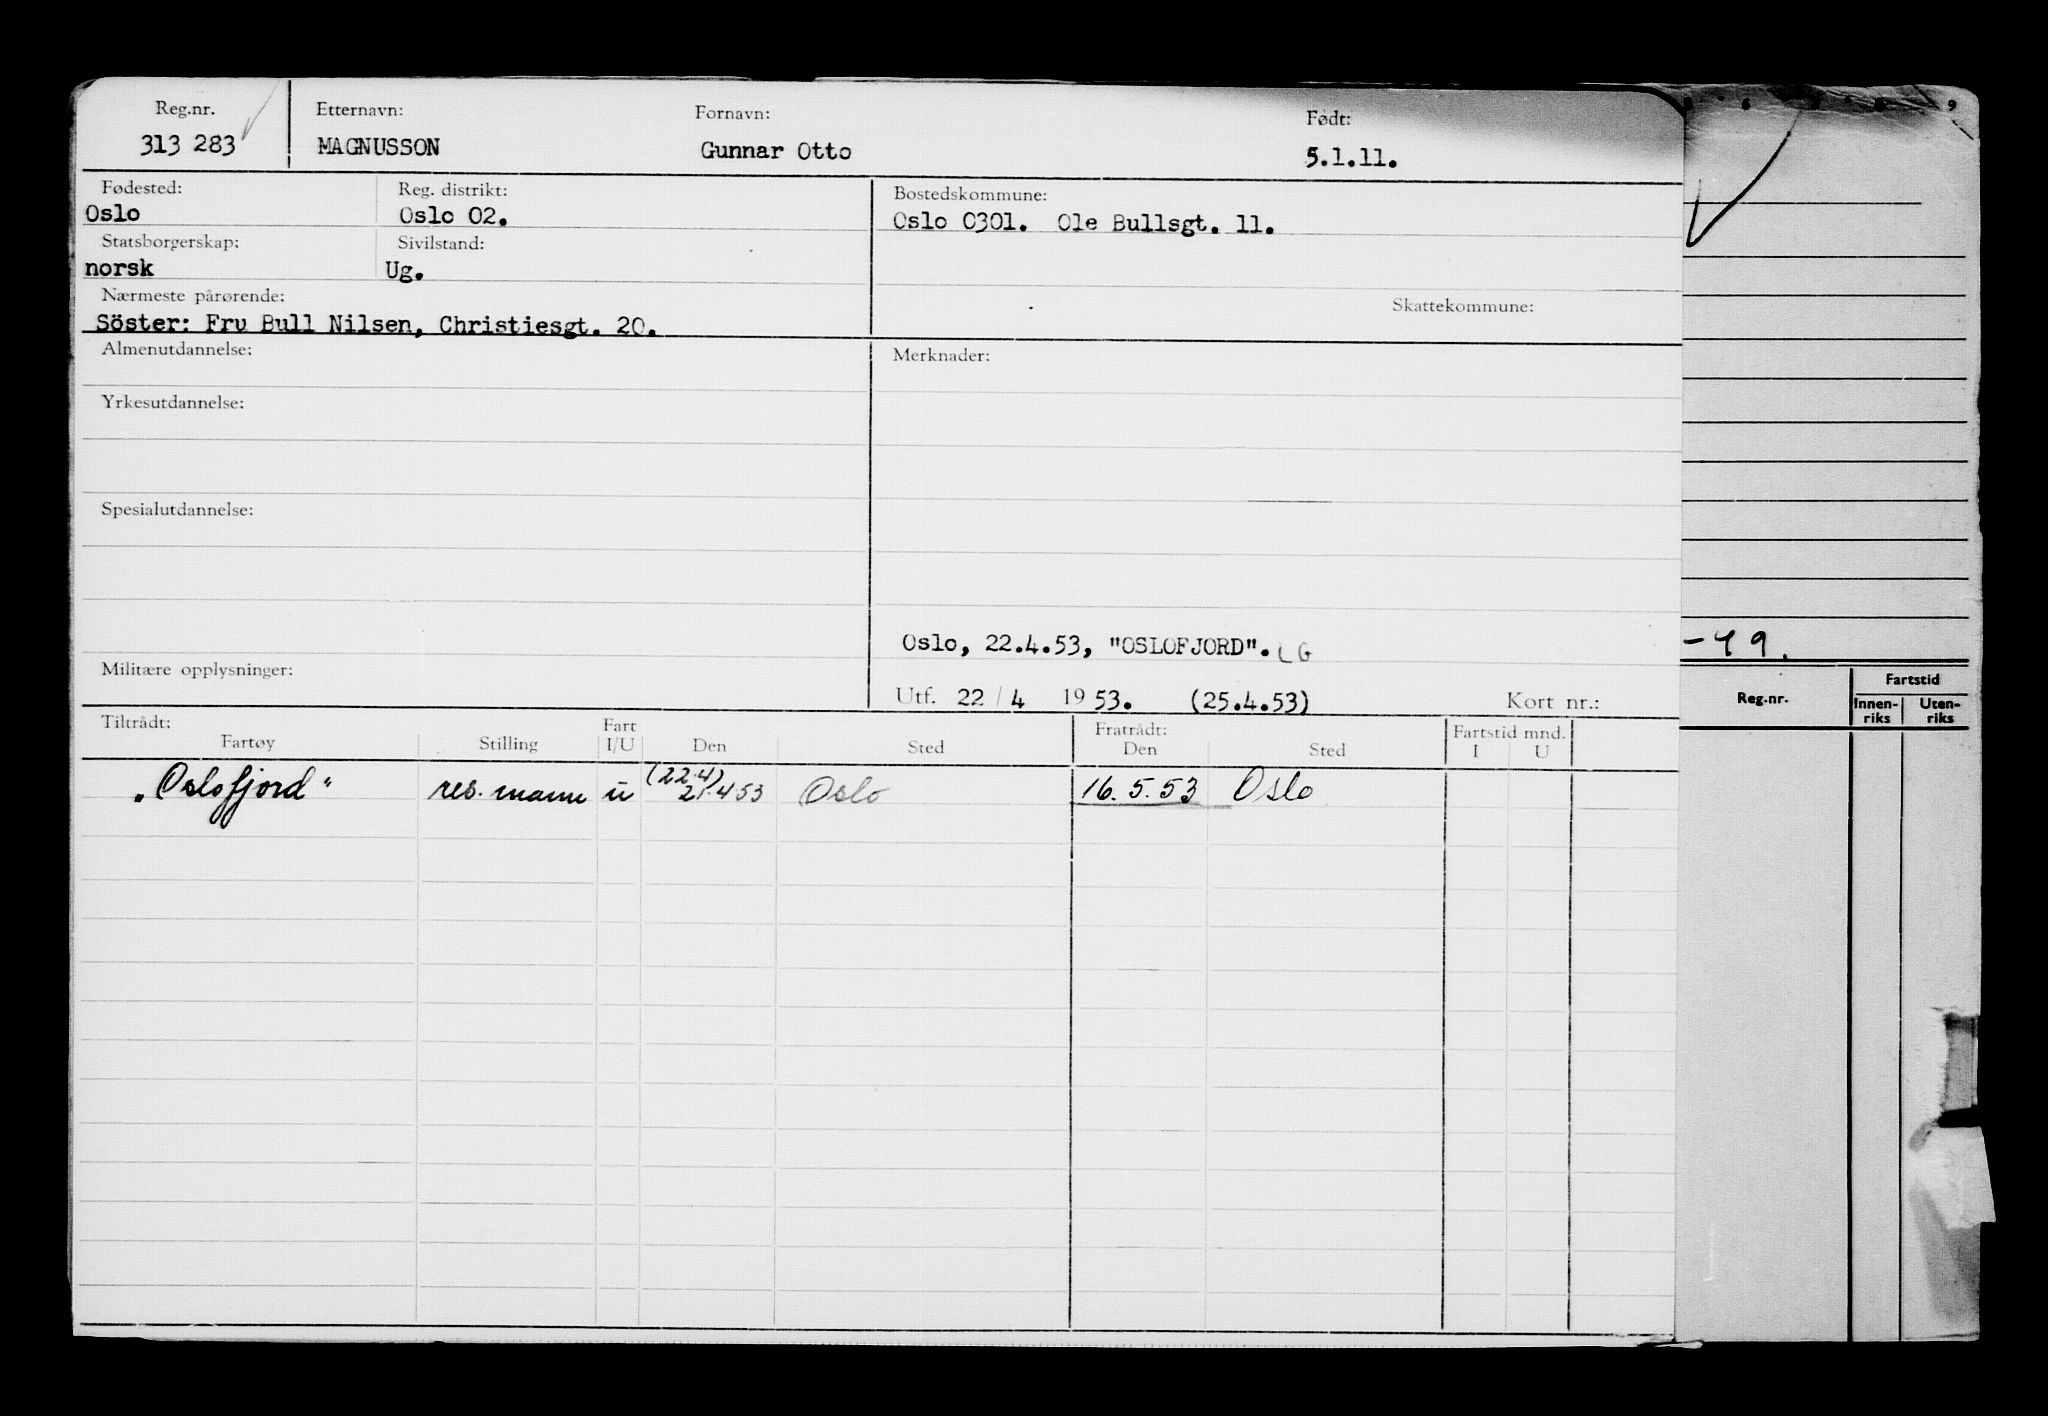 Reg.nr. Etternavn: Fornavn: Født:
313 283 MAGNUSSON Gunnar Otto 5.1.11.
Fødested: Reg. distrikt: Bostedskommune:
Oslo Oslo 02. Oslo 0301. Ole Bullsgt. 11.
Statsborgerskap: Sivilstand:
norsk Ug.
Nærmeste pårørende: Skattekommune:
Söster: Fru Bull Nilsen, Christiesgt. 20.
Almenutdannelse: Merknader:
Yrkesutdannelse:
Spesialutdannelse:
Oslo, 22.4.53, "OSLOFJORD". LG
Militære opplysninger:
Utf. 22/4 1953. (25.4.53) Kort nr.:
Tiltrådt: Fart Fratrådt: Fartstid mnd.
Fartøy Stilling I/U Den Sted Den Sted I U
„Oslofjord" res. mann u (22.4) 21.4 53 Oslo 16.5.53 Oslo
9
-49.
Reg.nr. Fartstid
Innen-riks Uten-riks